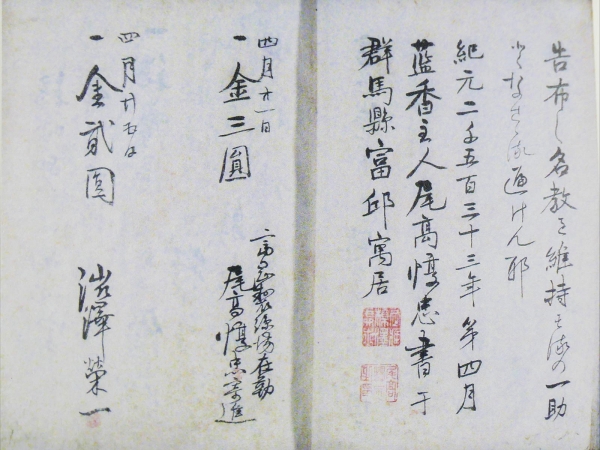 告布し名教を維持する済の一助
となさ
紀元二千五百三十三年第四月
藍香主人尾高惇忠書于
群馬縣富邱寓居
四月廿一日
一金三圓
富岡製糸場在勤
尾高惇忠寄進
四月廿五日
一金貳圓
澁澤榮一